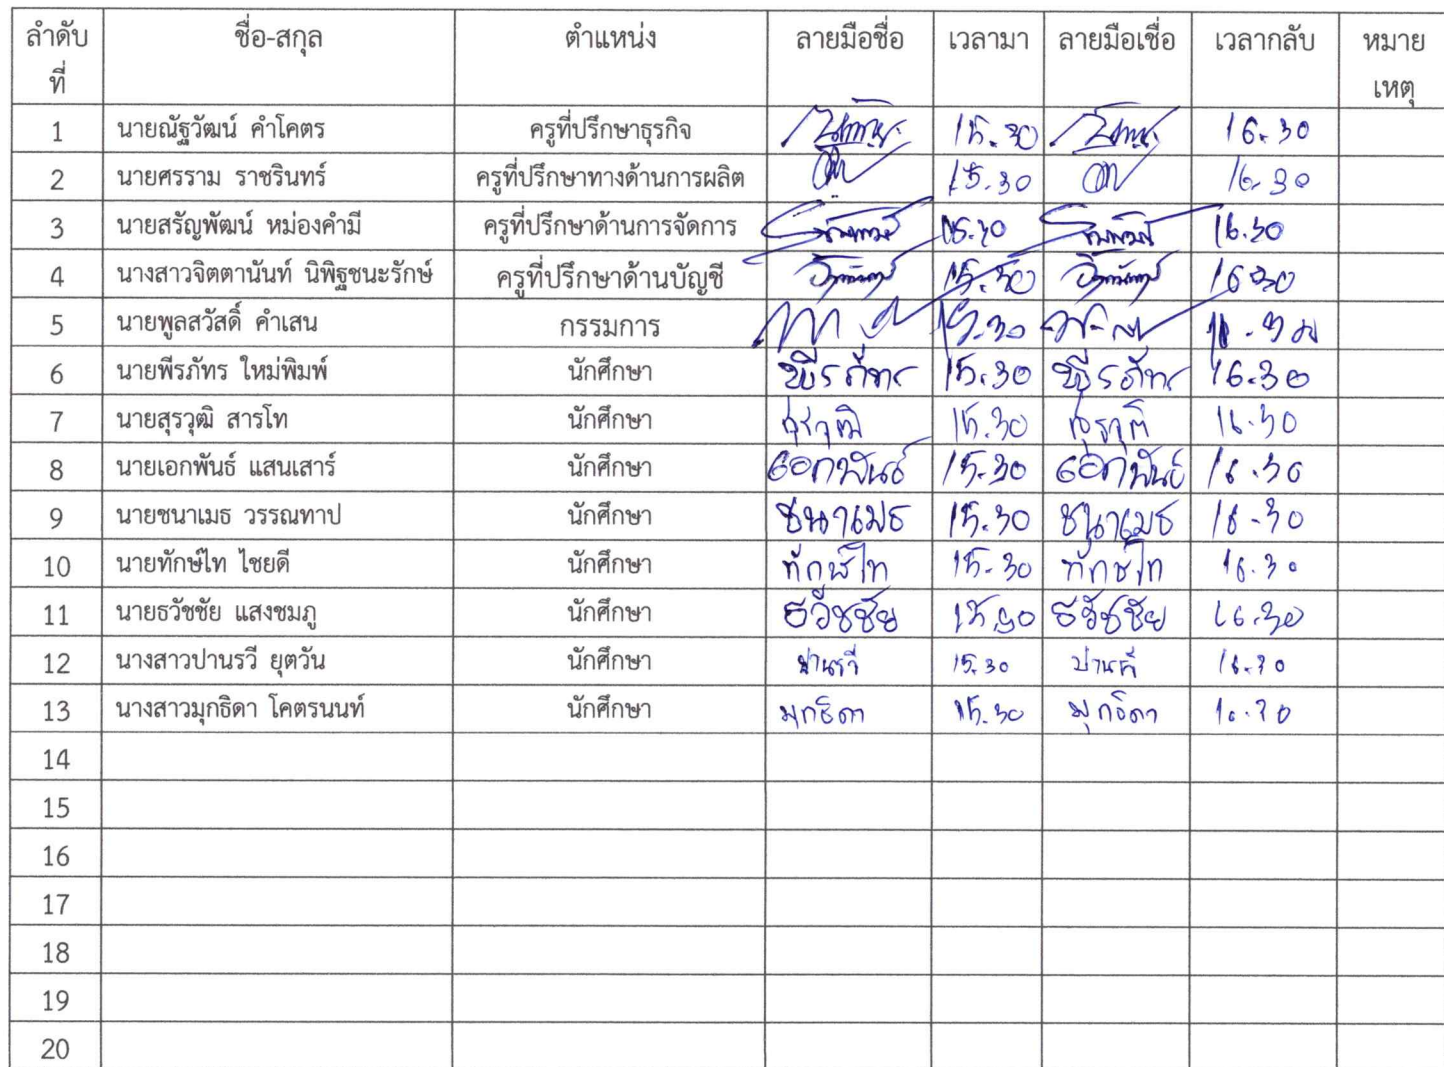 ลำดับที่ ชื่อ-สกุล ตำแหน่ง ลายมือชื่อ เวลามา ลายมือเชื่อ เวลากลับ หมายเหตุ
1 นายณัฐวัฒน์ คำโคตร ครูที่ปรึกษาธุรกิจ 15.30 16.30
2 นายศรราม ราชรินทร์ ครูที่ปรึกษาทางด้านการผลิต 15.30 16.30
3 นายสรัญพัฒน์ หม่องคำมี ครูที่ปรึกษาด้านการจัดการ 16.30
4 นางสาวจิตตานันท์ นิพิฐชนะรักษ์ ครูที่ปรึกษาด้านบัญชี 15.30 16.30
5 นายพูลสวัสดิ์ คำเสน กรรมการ 15.30
6 นายพีรภัทร ใหม่พิมพ์ นักศึกษา พีรภัทร 15.30 พีรภัทร 16.30
7 นายสุรวุฒิ สารโท นักศึกษา สุรวุฒิ 15.30 16.30
8 นายเอกพันธ์ แสนเสาร์ นักศึกษา เอกพันธ์ 15.30 เอกพันธ์ 16.30
9 นายชนาเมธ วรรณทาป นักศึกษา ชนาเมธ 15.30 ชนาเมธ 16.30
10 นายทักษ์ไท ไชยดี นักศึกษา ทักษ์ไท 15.30 ทักษ์ไท 16.30
11 นายธวัชชัย แสงชมภู นักศึกษา ธวัชชัย 15.30 ธวัชชัย 16.30
12 นางสาวปานรวี ยุตวัน นักศึกษา ปานรวี 15.30 ปานรวี 16.30
13 นางสาวมุกธิดา โคตรนนท์ นักศึกษา มุกธิดา 15.30 มุกธิดา 16.30
14
15
16
17
18
19
20